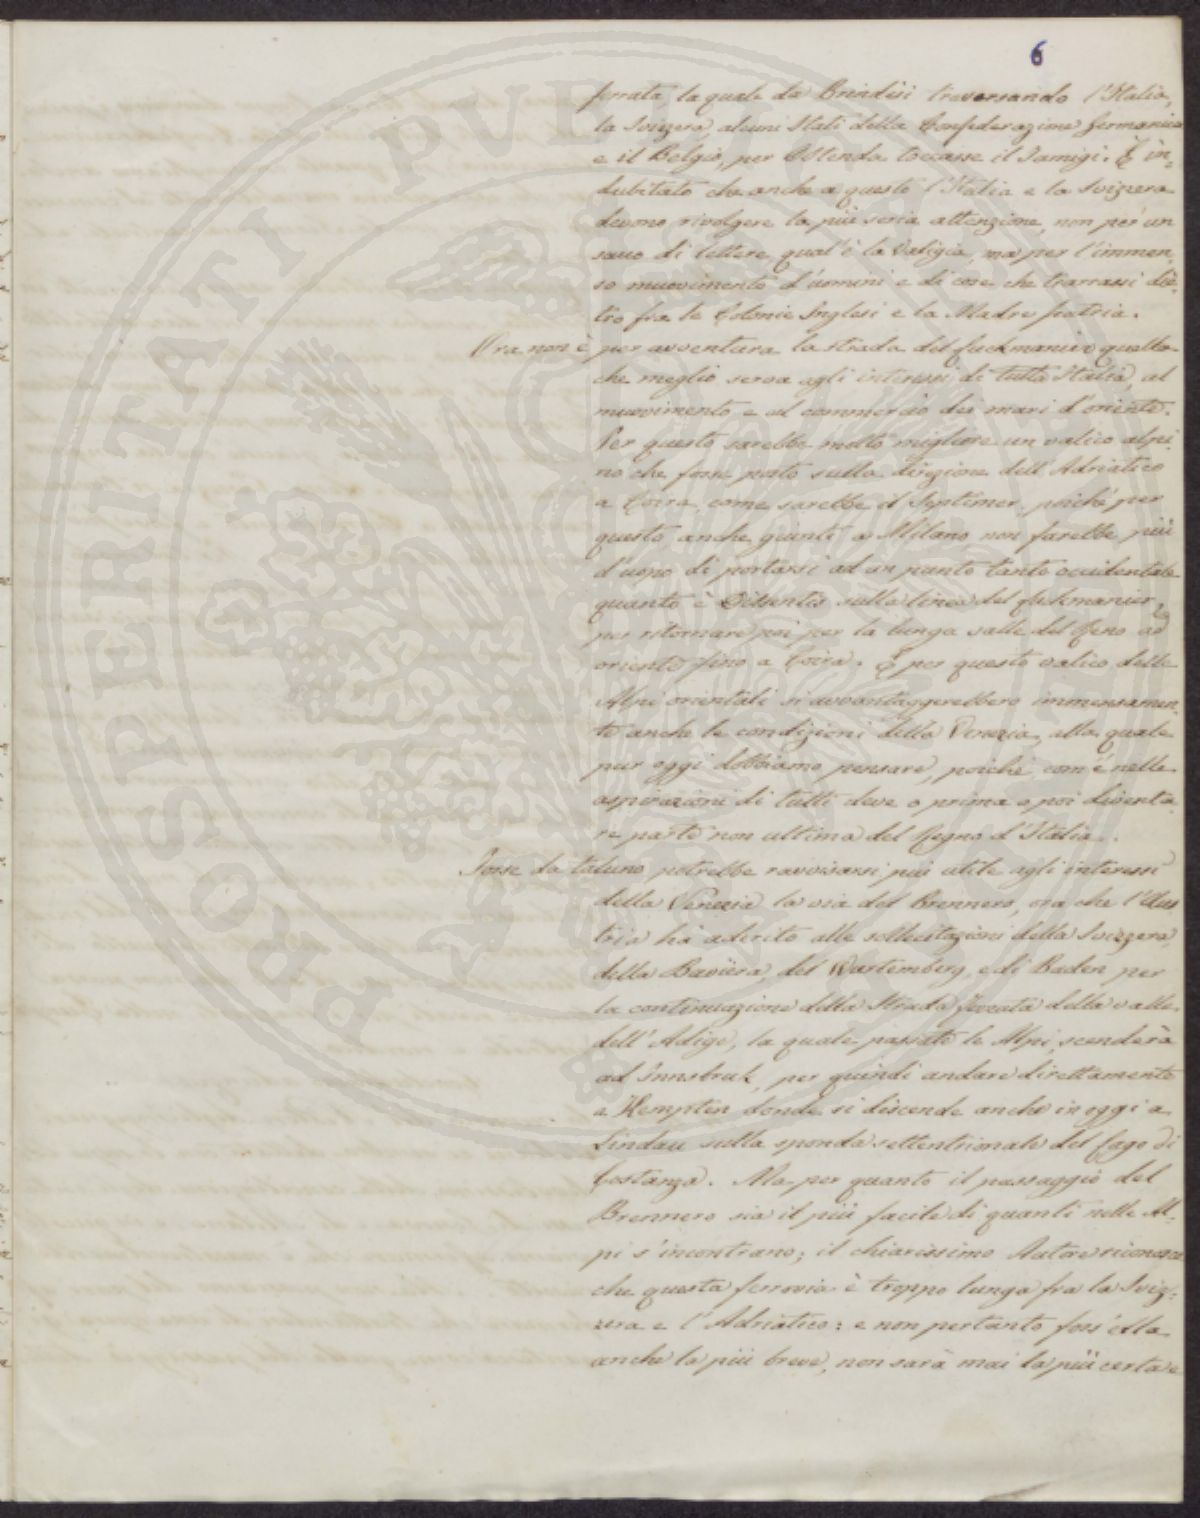 6
ferrata la quale da Brindisi traversando l'Italia,
la Svizzera, alcuni Stati della Confederazione Germanica
e il Belgio, per Ostenda toccasse il Tamigi. È in-
dubitato che anche a questo l'Italia e la Svizzera
devono rivolgere la più seria attenzione, non per un
sacco di lettere, qual'è la Valigia, ma per l'immen-
so muovimento d'uomini e di cose che trarrassi die-
tro fra le Colonie Inglesi e la Madre patria.
Ora non è per avventura la strada del Luckmanier quella
che meglio serva agli interessi di tutta Italia, al
muovimento e al commercio dei mari d'oriente.
Per questo sarebbe molto migliore un valico alpi-
no che fosse posto sulla direzione dell'Adriatico
a Coira, come sarebbe il Septimer, poiché per
questo anche giunti a Milano non farebbe più
d'uopo di portarsi ad un punto tanto occidentale
quanto è Dissentis sulla linea del Lukmanier
per ritornare poi per la lunga valle del Reno ad
oriente fino a Coira. E per questo valico delle
Alpi orientali si avvantaggerebbero immensamen-
te anche le condizioni della Venezia, alla quale
pur oggi dobbiamo pensare, poiché com'è nelle
aspirazioni di tutti deve o prima o poi diventa-
re parte non ultima del Regno d'Italia.
Forse da taluno potrebbe ravvisarsi più utile agli interessi
della Venezia la via del Brennero, ora che l'Aus
tria ha aderito alle sollecitazioni della Svizzera,
della Baviera, del Wurtemberg, e di Baden per
la continuazione della Strada ferrata della valle
dell'Adige, la quale passate le Alpi, scenderà
ad Innsbruk, per quindi andare direttamente
a Kempten donde si discende anche in oggi a
Lindau sulla sponda settentrionale del Lago di
Costanza. Ma per quanto il passaggio del
Brennero sia il più facile di quanti nelle Al-
pi s'incontrano; il chiarissimo Autore riconosce
che questa ferrovia è troppo lunga fra la Sviz-
zera e l'Adriatico: e non pertanto foss'ella
anche la più breve, non sarà mai la più certa e
PROSPERITATI PVBLICAE